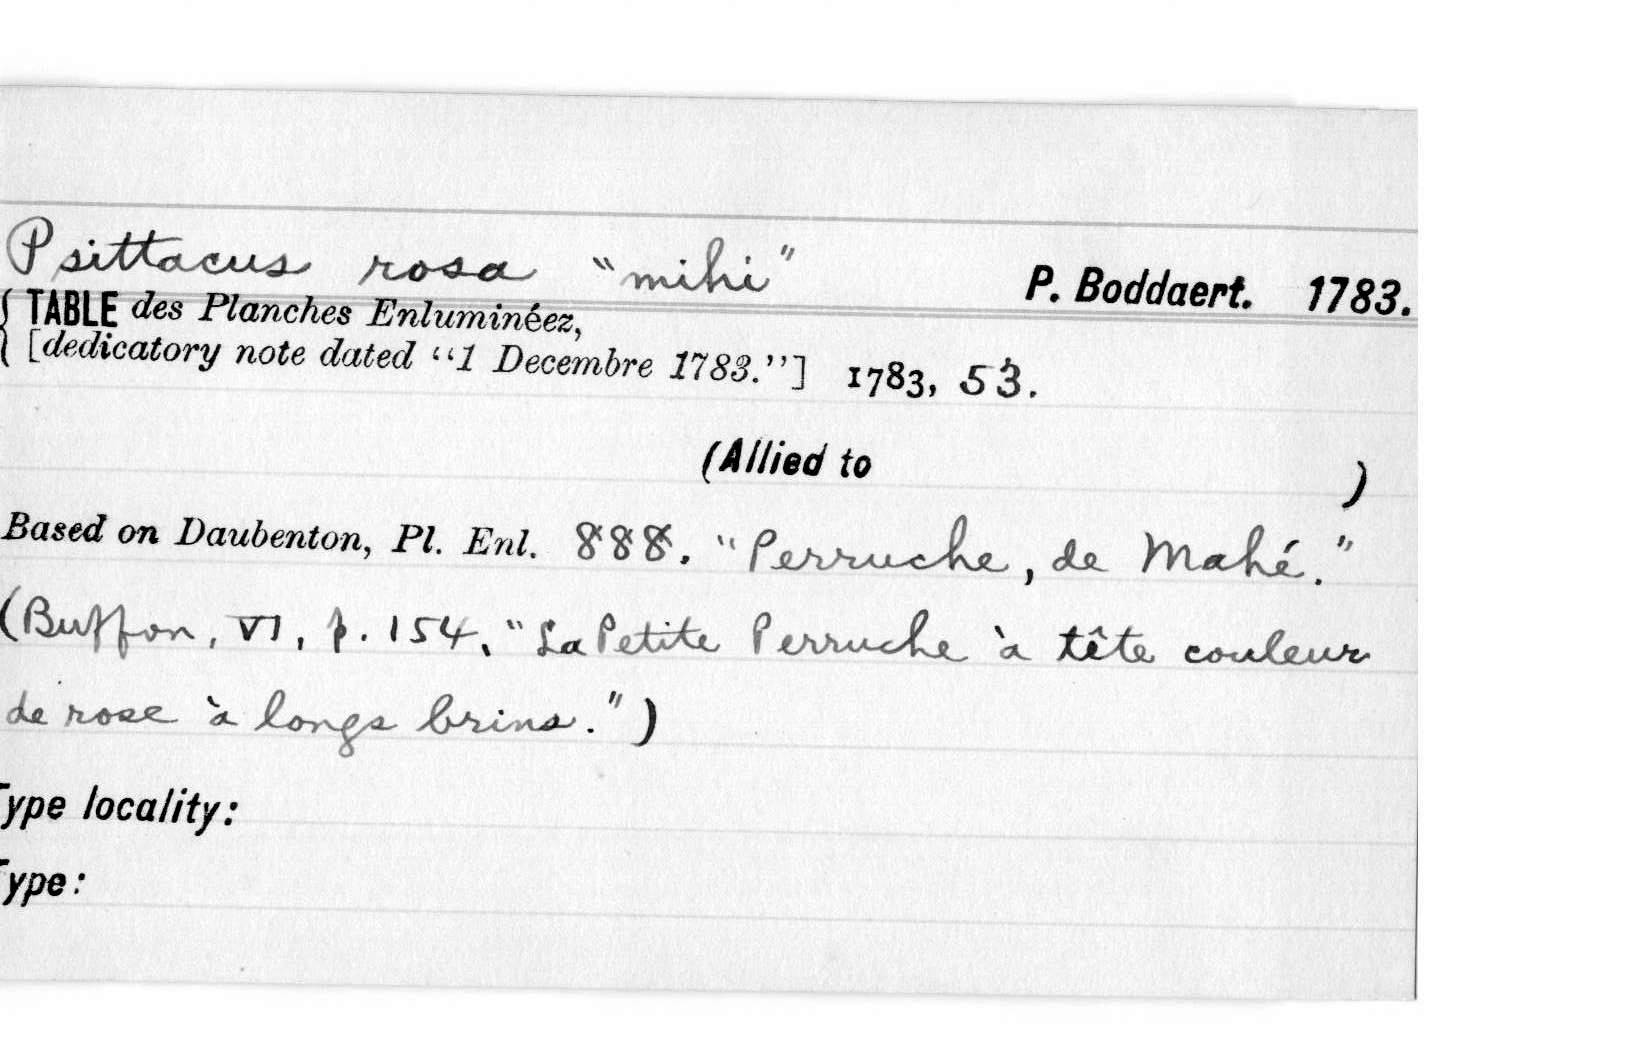 Psittacus rosa "mihi" P. Boddaert. 1783.
{ TABLE des Planches Enluminéez,
[dedicatory note dated "1 Decembre 1783."] 1783, 53.
(Allied to )
Based on Daubenton, Pl. Enl. 888. "Perruche, de Mahé."
(Buffon, VI, p. 154, "La Petite Perruche à tête couleur
de rose à longs brins.")
Type locality:
Type: